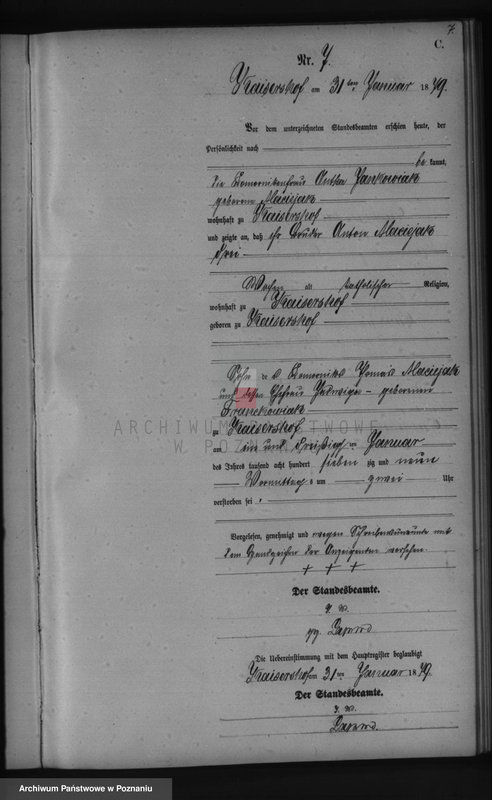 7.
C.
Nr. 7.
Kaisershof am 31ten Januar 1879.
Vor dem unterzeichneten Standesbeamten erschien heute, der
Persönlichkeit nach
be kannt,
die Komornikenfrau Antka Jankowiak
geborene Maciejak
wohnhaft zu Kaisershof
und zeigte an, daß ihr Bruder Anton Maciejak
drei
Wochen alt katholischer Religion,
wohnhaft zu Kaisershof
geboren zu Kaisershof
Sohn des Komorniks Thomas Maciejak
und dessen Ehefrau Hedwiga geborenen
Franckowiak
zu Kaisershof
am ein und dreißigten Januar
des Jahres tausend acht hundert sieben zig und neun
Vormittags um zwei Uhr
verstorben sei.
Vorgelesen, genehmigt und wegen Schreibensunkunde mit
dem Handzeichen der Anzeigenden versehen.
+ + +
Der Standesbeamte.
gz.
Die Uebereinstimmung mit dem Hauptregister beglaubigt
Kaisershof am 31ten Januar 1879.
Der Standesbeamte.
ARCHIWUM PAŃSTWOWE
W POZNANIU
Archiwum Państwowe w Poznaniu